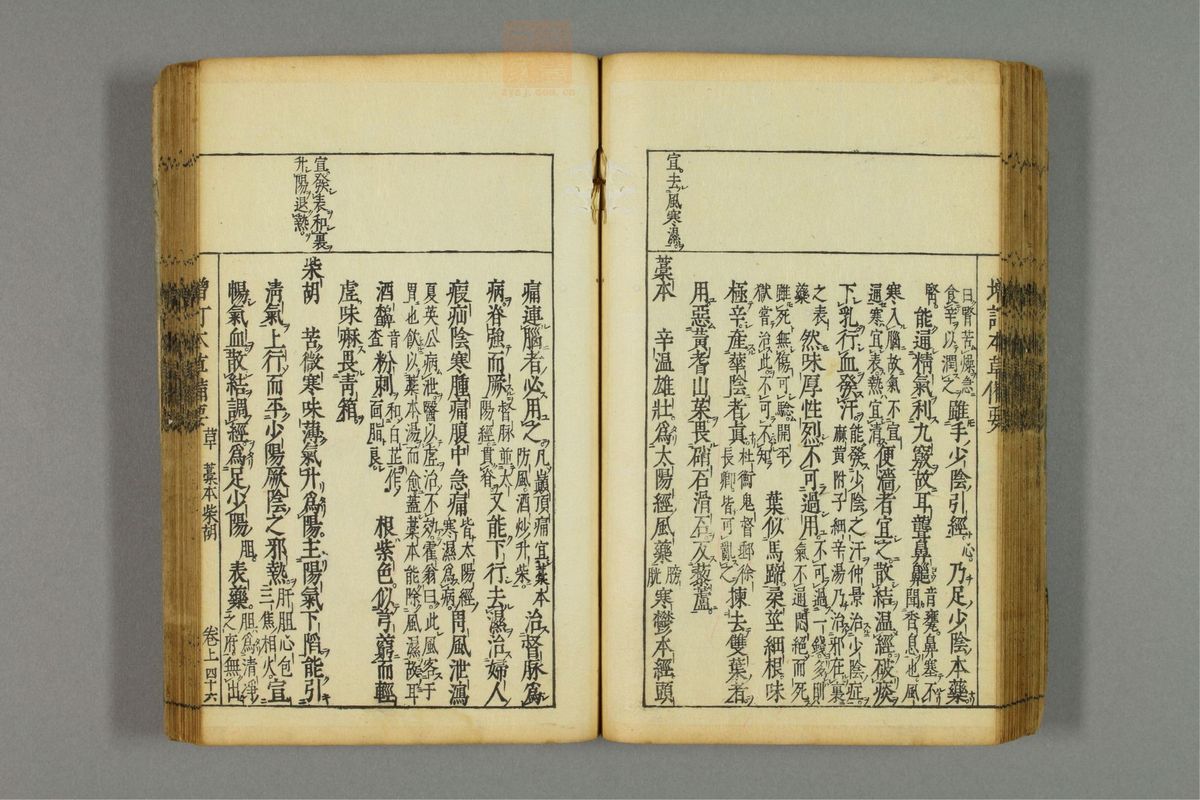 宜去風寒濕
增訂本草備要
曰腎苦燥急
食辛以潤之
雖手少陰引經心乃足少陰本藥
腎能通精氣利九竅故耳聾鼻齆音甕鼻塞不
聞香息也風
寒入腦故氣不宣
通寒宜表熱宜清
便濇者宜之散結温經破痰
下乳行血發汗能發少陰之汗仲景治少陰症
麻黄附子細辛湯乃治邪在裏
之表
藥
然味厚性烈不可過用不可過一錢多則
氣不通悶絕而死
雖死無傷可驗開平
獄嘗治此不可不知
葉似馬蹄柔莖細根味
極辛產華陰者真杜衡鬼督郵徐
長卿皆可亂之
揀去雙葉者
用惡黃耆山茱畏硝石滑石反藜蘆
藁本
辛温雄壯爲太陽經風藥膀
胱
寒鬱本經頭
痛連腦者必用之凡巔頂痛宜藁本
防風酒炒升柴
治督脉爲
病脊強而厥督脉並太
陽經貫脊
又能下行去濕治婦人
瘕疝陰寒腫痛腹中急痛皆太陽經
寒濕爲病
胃風泄瀉
夏英公病泄醫以虚治不效霍翁曰此風客于
胃也飲以藁本湯而愈蓋藁本能除風濕故耳
酒齄音
查
粉刺和白芷作
面脂良
根紫色似芎藭而輕
虛味麻畏青箱
宜發表和裏
升陽退熱
柴胡
苦微寒味薄氣升爲陽主陽氣下陷能引
清氣上行而平少陽厥陰之邪熱肝胆心包
三焦相火
宣
暢氣血散結調經爲足少陽胆表藥胆爲清淨
之府無出
增訂本草備要
草
藁本柴胡
卷上四十六